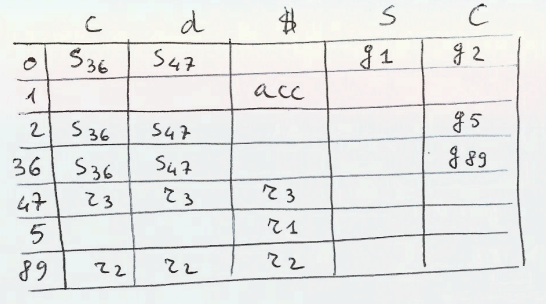 c d $ S C
0 S36 S47 g1 g2
1 acc
2 S36 S47 g5
36 S36 S47 g89
47 r3 r3 r3
5 r1
89 r2 r2 r2